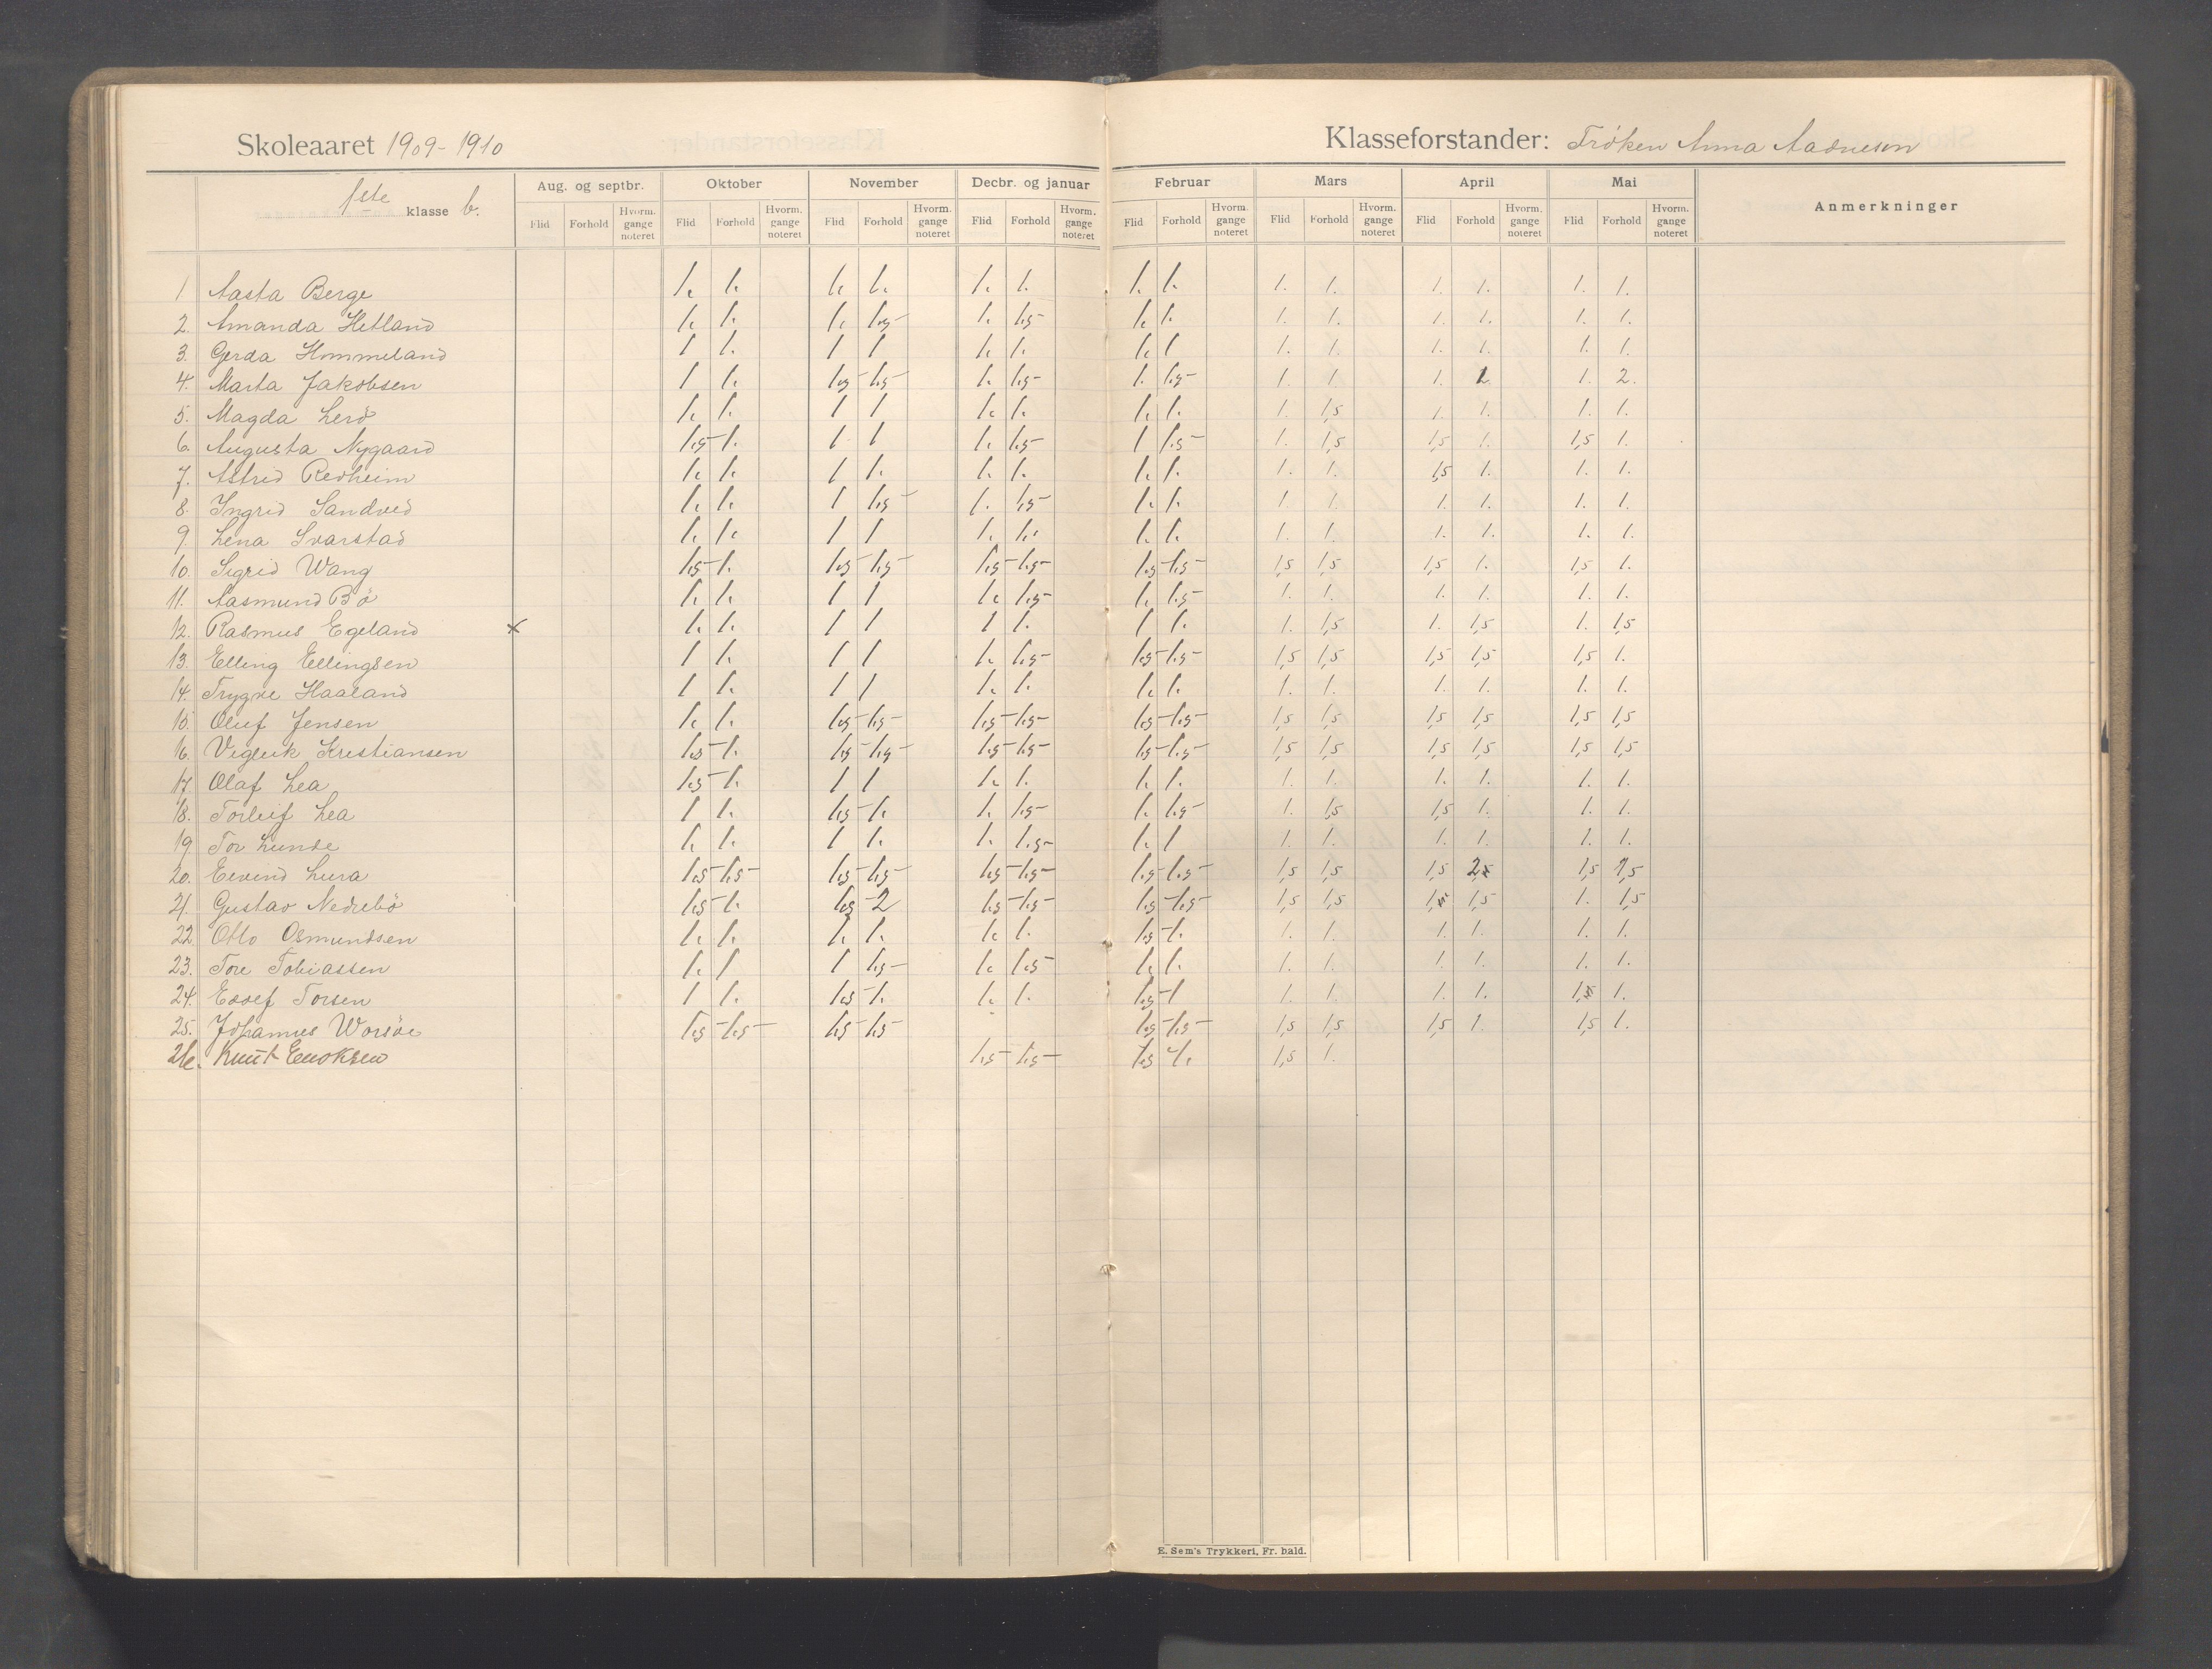 Skoleaaret 1909-1910
Klasseforstander: Frøken Anna Aadnesen
1ste klasse b.
Aug. og septbr. Oktober November Decbr. og januar Februar Mars April Mai Anmerkninger
Flid Forhold Hvorm. gange noteret Flid Forhold Hvorm. gange noteret Flid Forhold Hvorm. gange noteret Flid Forhold Hvorm. gange noteret Flid Forhold Hvorm. gange noteret Flid Forhold Hvorm. gange noteret Flid Forhold Hvorm. gange noteret Flid Forhold Hvorm. gange noteret
1 Aasta Berge 1. 1. 1. 1. 1. 1. 1. 1. 1. 1. 1. 1. 1. 1.
2. Amanda Hetland 1. 1. 1. 1.5 1. 1.5 1. 1. 1. 1. 1. 1. 1. 1.
3. Gerda Hommeland 1 1. 1 1 1. 1. 1. 1 1. 1. 1. 1. 1. 1.
4. Marta Jakobsen 1 1. 1.5 1.5 1. 1.5 1. 1.5 1. 1 1. 2 1. 2.
5. Magda Lerö 1. 1. 1 1 1. 1. 1. 1. 1. 1,5 1. 1. 1. 1.
6. Augusta Nygaard 1.5 1. 1 1 1. 1.5 1 1.5 1. 1,5 1,5 1. 1,5 1.
7. Astrid Redheim 1. 1. 1 1. 1. 1. 1. 1. 1. 1. 1,5 1. 1. 1.
8. Ingrid Sandved 1. 1. 1 1.5 1. 1.5 1. 1. 1. 1. 1. 1. 1. 1.
9. Lena Svarstad 1. 1. 1 1 1. 1. 1. 1. 1. 1. 1. 1. 1. 1.
10. Sigrid Wang 1.5 1. 1.5 1.5 1.5 1.5 1.5 1.5 1,5 1,5 1,5 1. 1,5 1.
11. Aasmund Bö 1. 1. 1 1 1. 1.5 1. 1.5 1. 1. 1. 1. 1. 1.
12. Rasmus Egeland x 1. 1. 1 1 1 1. 1 1. 1. 1,5 1. 1,5 1. 1,5
13. Elling Ellingsen 1 1. 1 1 1. 1.5 1.5 1.5 1,5 1,5 1,5 1,5 1,5 1.
14. Trygve Haaland 1 1. 1 1 1. 1. 1. 1. 1. 1. 1. 1. 1. 1.
15. Oluf Jensen 1. 1. 1.5 1.5 1.5 1.5 1.5 1.5 1,5 1,5 1,5 1,5 1,5 1,5
16. Vigleik Kristiansen 1.5 1. 1.5 1.5 1.5 1.5 1.5 1.5 1,5 1,5 1,5 1,5 1,5 1,5
17. Olaf Lea 1.5 1. 1 1 1. 1. 1. 1. 1. 1. 1. 1. 1. 1.
18. Torleif Lea 1 1. 1.5 1. 1. 1.5 1. 1.5 1. 1,5 1,5 1. 1. 1.
19 Tor Lunde 1. 1. 1 1. 1. 1.5 1. 1 1. 1. 1. 1. 1. 1.
20. Eivind Lura 1.5 1.5 1.5 1.5 1.5 1.5 1.5 1.5 1,5 1,5 1,5 2 1,5 1,5
21. Gustav Nedrebö 1.5 1. 1.5 2 1.5 1.5 1.5 1.5 1,5 1,5 1, 1,5 1. 1,5
22 Otto Osmundsen 1. 1. 1. 1. 1. 1. 1.5 1. 1. 1. 1. 1. 1. 1.
23. Tore Tobiassen 1. 1 1 1.5 1. 1.5 1. 1. 1. 1. 1. 1. 1. 1.
24. Torsen 1 1. 1.5 1. 1. 1. 1.5 1 1. 1. 1. 1. 1, 1.
25. Johannes Worsöe 1.5 1.5 1.5 1.5 1.5 1.5 1,5 1,5 1,5 1. 1,5 1.
26. Knut Enoksen 1.5 1.5 1.5 1. 1,5 1.
E. Sem's Trykkeri, Fr. hald.